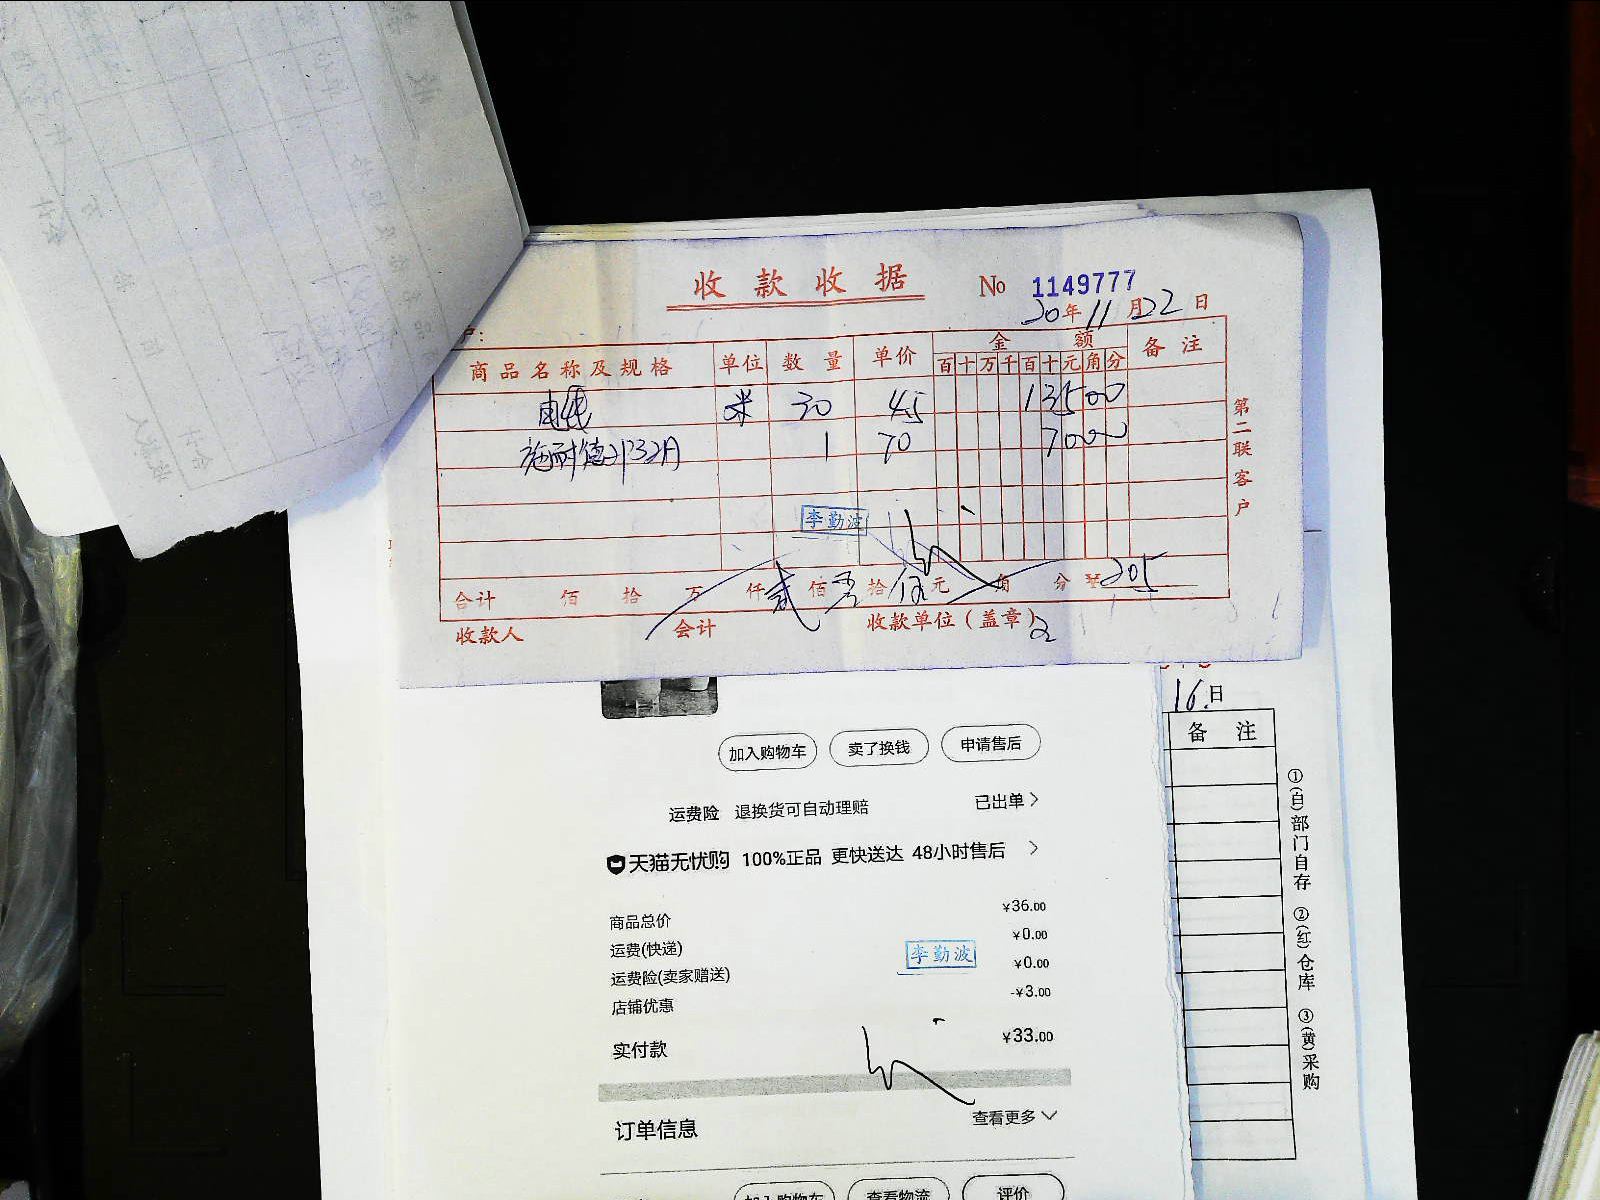 收款收据 No 1149777
20年11月22日
户:
商品名称及规格 单位 数量 单价 金额 备注
百十万千百十元角分
电线 米 30 4.5 13500
施耐德2P32A 1 70 7000
李勤波
合计 佰 拾 万 仟贰佰零拾伍元 角 分 ¥205
收款人 会计 收款单位(盖章)
第二联客户
16.日
备注
①(自)部门自存 ②(红)仓库 ③(黄)采购
加入购物车 卖了换钱 申请售后
运费险 退换货可自动理赔 已出单 >
天猫无忧购 100%正品 更快送达 48小时售后 >
商品总价 ¥36.00
运费(快递) ¥0.00
运费险(卖家赠送) ¥0.00
李勤波
店铺优惠 -¥3.00
实付款 ¥33.00
订单信息 查看更多
加入购物车 查看物流 评价